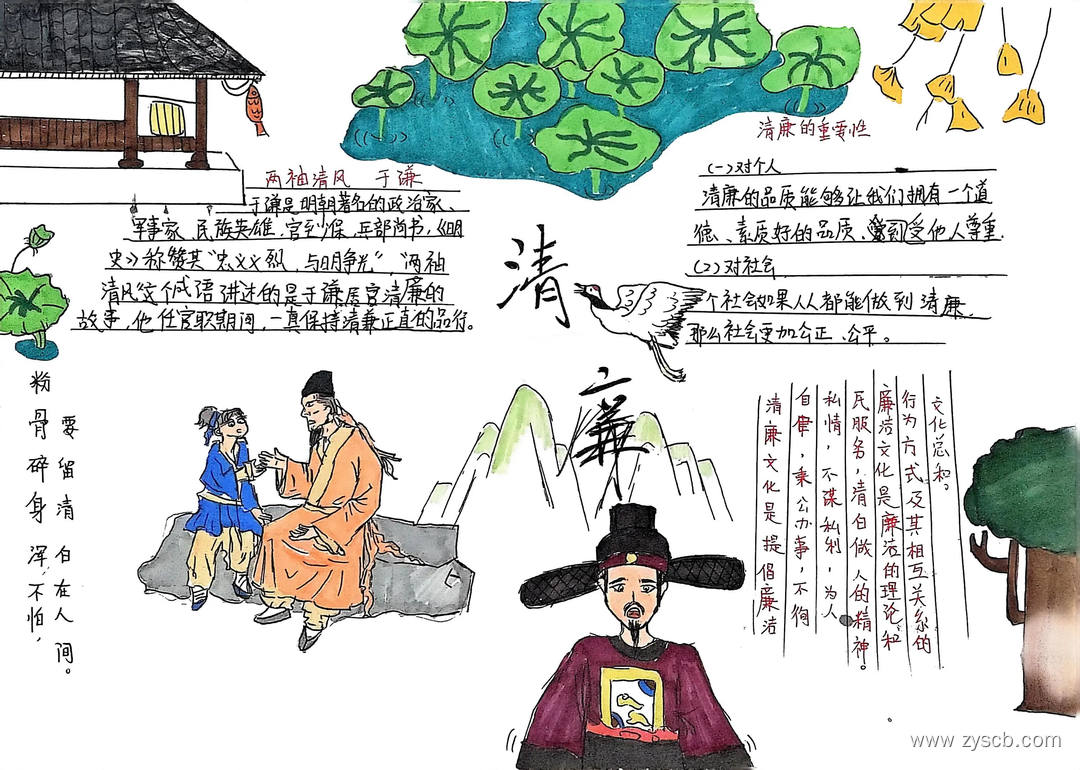 两袖清风 于谦
于谦是明朝著名的政治家、
军事家、民族英雄,官至少保,兵部尚书,《明
史》称赞其“忠义烈,与明争光”,“两袖
清风”这个成语讲述的是于谦居官清廉的
故事,他任官职期间,一直保持清廉正直的品行。
清廉的重要性
(一)对个人
清廉的品质能够让我们拥有一个道
德、素质好的品质、受他人尊重.
(2)对社会
个社会如果人人都能做到清廉,
那么社会更加公正、公平。
清
廉
粉骨碎身浑不怕,
要留清白在人间。
清廉文化是提倡廉洁
自律,秉公办事,不徇
私情,不谋私利,为人
民服务,清白做人的精神。
廉洁文化是廉洁的理论和
行为方式及其相互关系的
文化总和。
www.zyscb.com